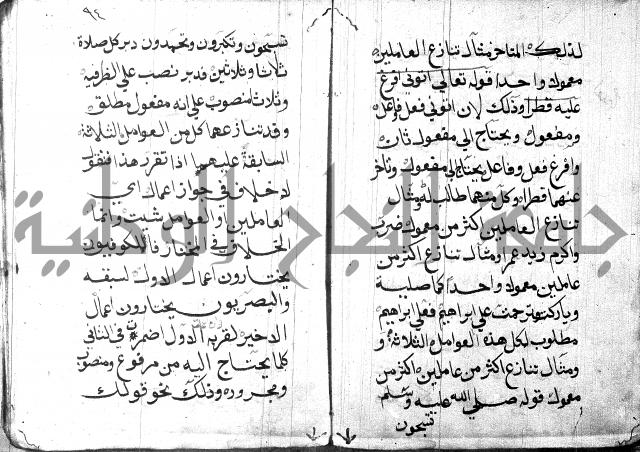 لذلك المتاخر مثال تنازع العاملين
معمولا واحدا قوله تعالى اتوني افرغ
عليه قطرا وذلك لان اتوني فعل وفاعل
ومفعول ويحتاج الي مفعول ثان
وافرغ فعل وفاعل يحتاج الي مفعول وتاخر
عنهما قطرا وكل منهما طالب له ومثال
تنازع العاملين اكثر من معمول ضرب
واكرم زيد عمرا ومثال تنازع اكثر من
عاملين معمولا واحدا كما صليت
وباركت وترحمت علي ابراهيم فعلي ابراهيم
مطلوب لكل هذه العوامل الثلاثة و
ومثال تنازع اكثر من عاملين اكثر من
معمول قوله صلي الله عليه وسلم
تسبحون
٩٤
تسبحون وتكبرون وتحمدون دبر كل صلاة
ثلاثا وثلاثين فدبر نصب علي الظرفيه
وثلاث منصوب علي انه مفعول مطلق
وقد تنازعهما كل من العوامل الثلاثة
السابقة عليهما اذا تقرر هذا فنقول
لا خلاف في جواز اعمال اي
العاملين او العوامل شئت وانما
الخلاف في المختار فالكوفيون
يختارون اعمال الاول لسبقه
والبصريون يختارون اعمال
الاخير لقربه الاول اضمرت في الثاني
كلما يحتاج اليه من مرفوع ومنصوب
ومجرور وذلك نحو قولك
جامعة النجاح الوطنية